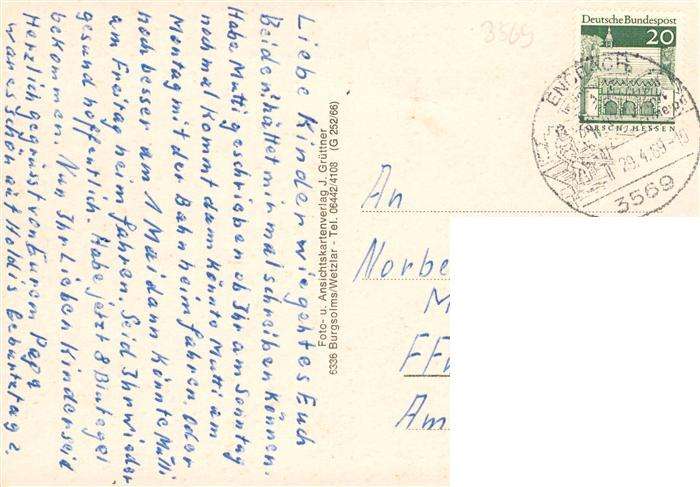 Liebe Kinder wie geht es Euch
Beiden hättet mir mal schreiben können.
Habe Mutti geschrieben ob Ihr am Sonntag
noch mal kommt dann könnte Mutti am
Montag mit der Bahn heim fahren. Oder
noch besser am 1 Mai dann könnte Mutti
am Freitag heim fahren. Seid Ihr wieder
gesund hoffentlich. Habe jetzt 8 Blutegel
bekommen. Nun Ihr Lieben Kinder seid
Herzlich gegrüsst von Eurem Papa
war es schön auf Holdis Geburtztag?
Foto- u. Ansichtskartenverlag J. Grüttner
6336 Burgsolms/Wetzlar - Tel. 06442/4108 (G 252/66)
3569
Deutsche Bundespost
20
LORSCH/HESSEN
29.4.69
3569
An
Norbe
M
FF
Am